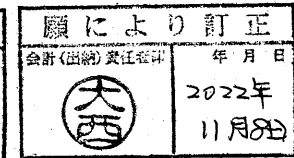 願により訂正
会計(出納)責任者印
年月日
大西
2022年
11月8日